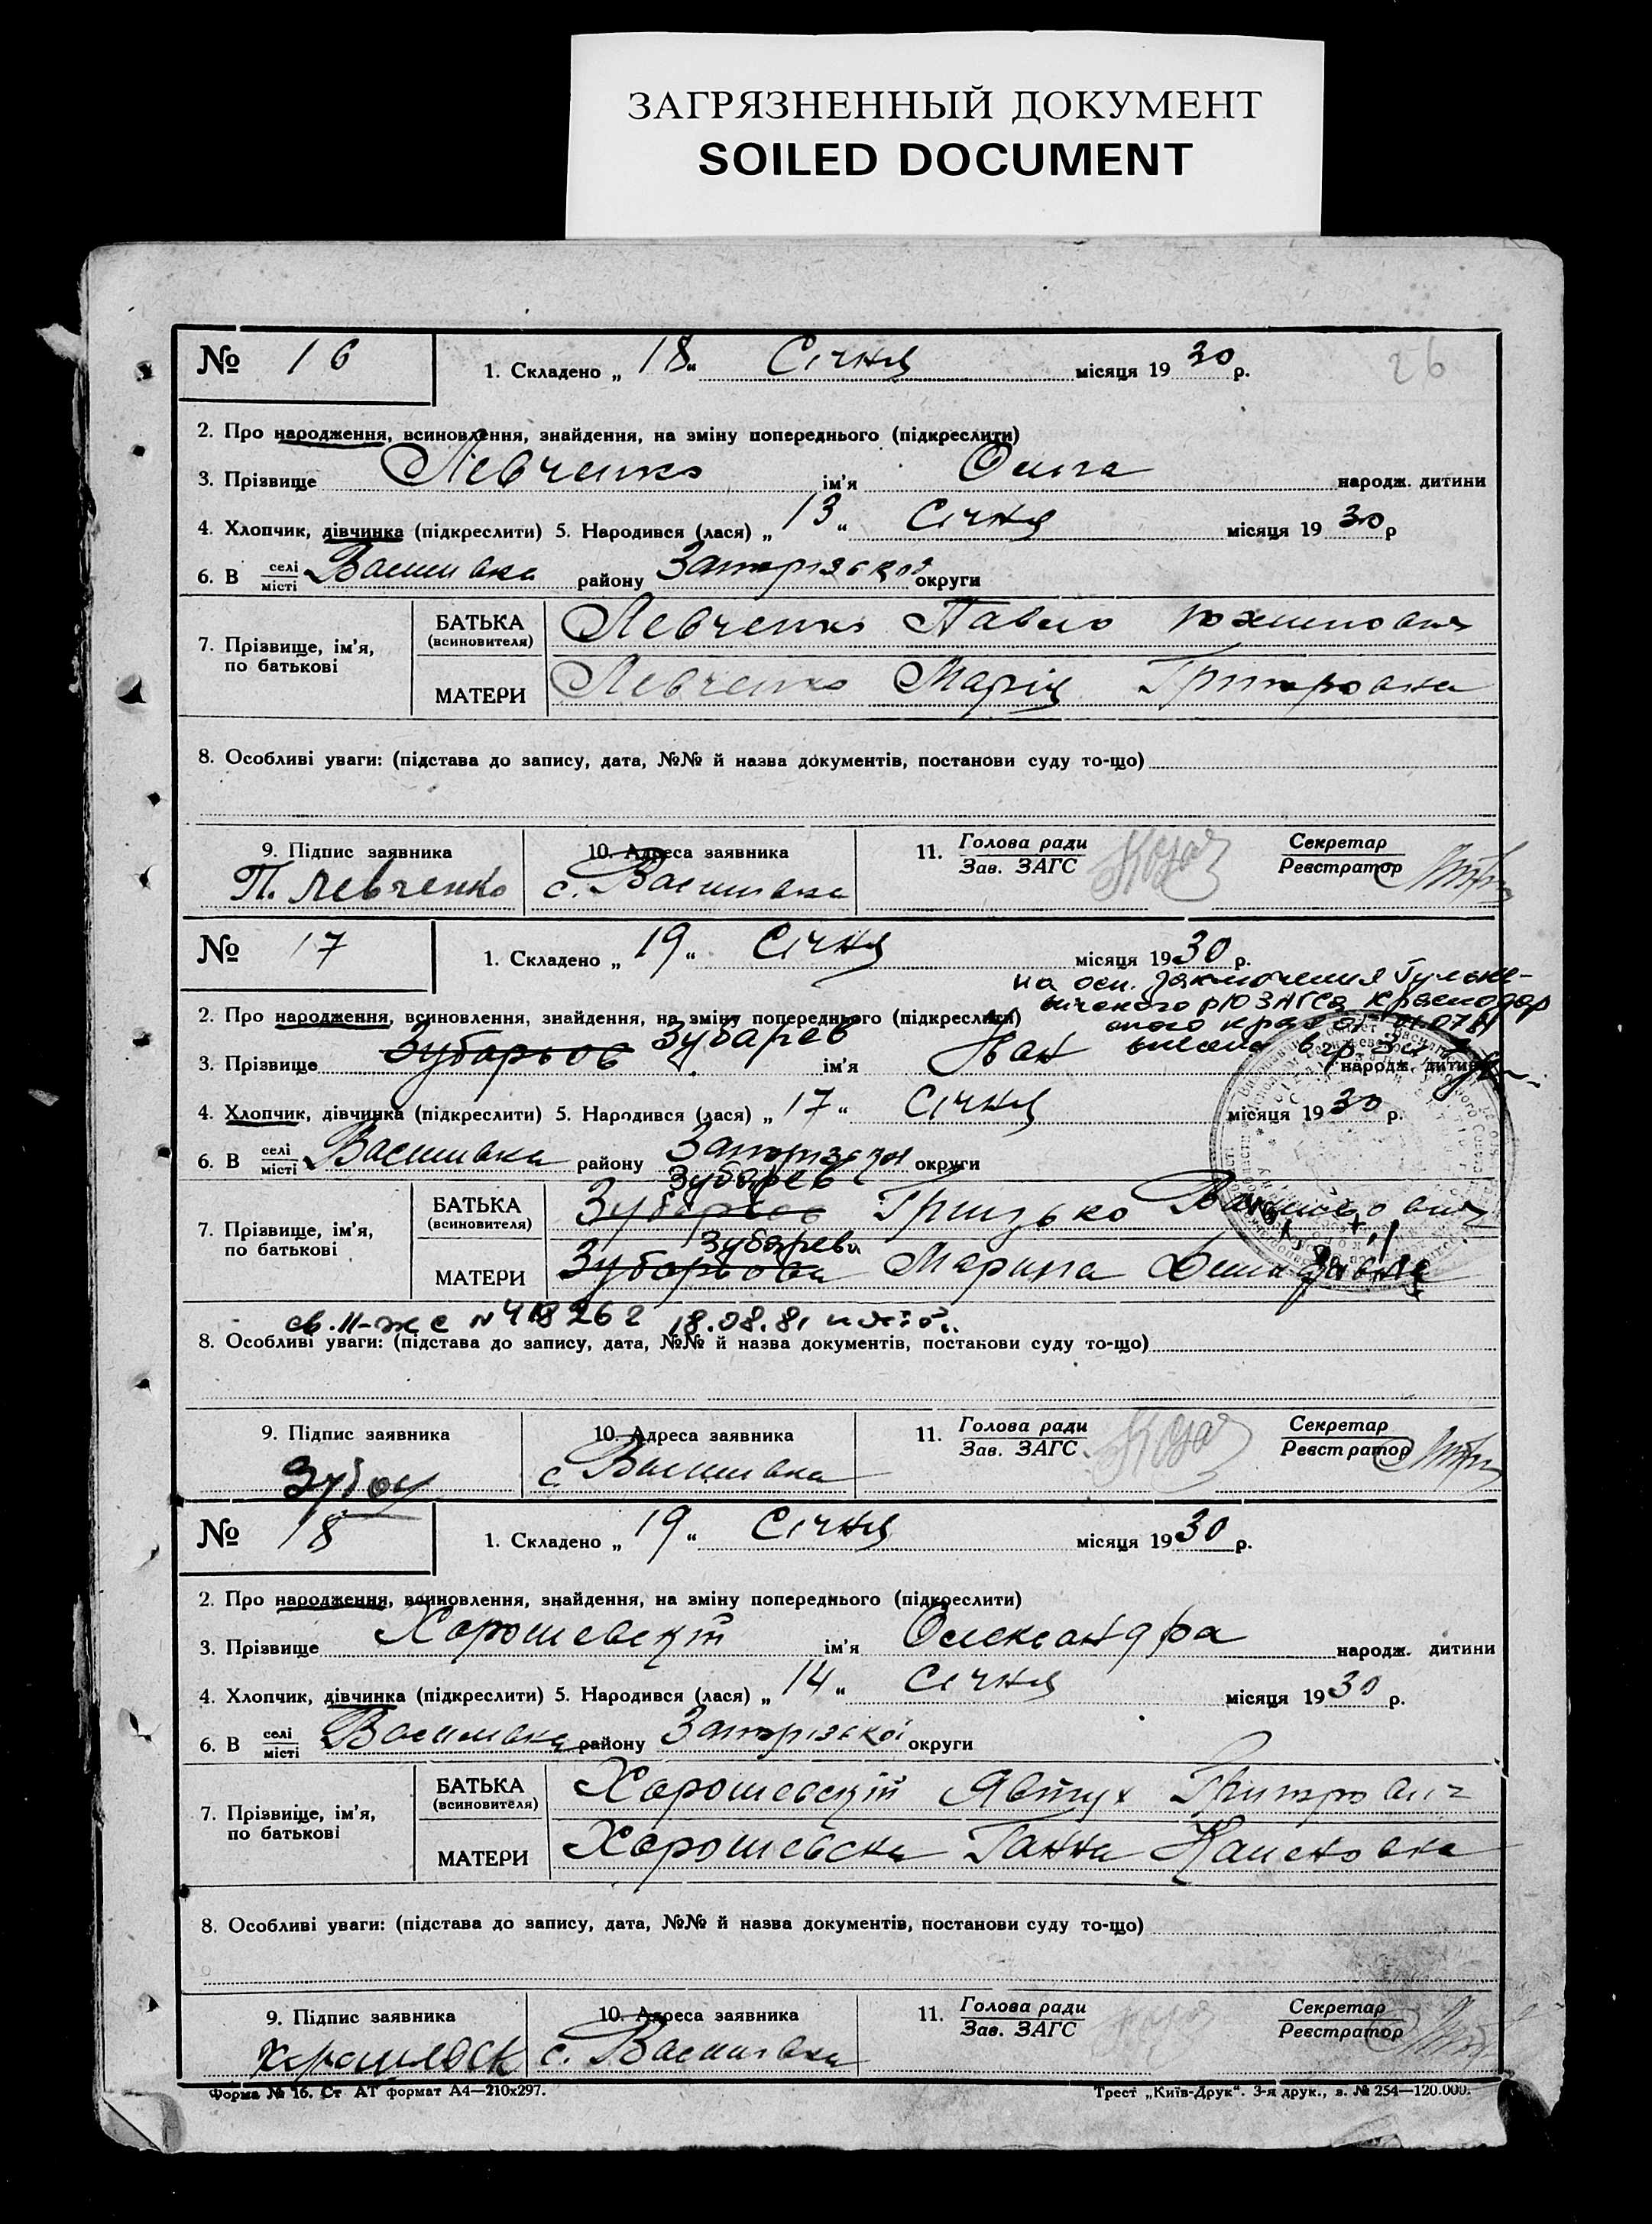 ЗАГРЯЗНЕННЫЙ ДОКУМЕНТ
SOILED DOCUMENT
26
№ 16 1. Складено „ 18 “ Січня місяця 19 30 р.
2. Про народження, всиновлення, знайдення, на зміну попереднього (підкреслити)
3. Прізвище Левченко ім'я Ольга народж. дитини
4. Хлопчик, дівчинка (підкреслити) 5. Народився (лася) „ 13 “ Січня місяця 19 30 р
6. В селі/місті Василівка району Запорізької округи
7. Прізвище, ім'я, по батькові
БАТЬКА (всиновителя) Левченко Павло
МАТЕРИ Левченко Марія Григоровна
8. Особливі уваги: (підстава до запису, дата, №№ й назва документів, постанови суду то-що)
9. Підпис заявника 10. Адреса заявника 11. Голова ради/Зав. ЗАГС Секретар/Реєстратор
П. Левченко с. Василівка
№ 17 1. Складено „ 19 “ Січня місяця 19 30 р.
на осн. заключения Гульке-
вичского р/ЮЗАГСа Краснодар
ского края от
2. Про народження, всиновлення, знайдення, на зміну попереднього (підкреслити)
3. Прізвище Зубарьов Зубарев ім'я Іван народж. дитини
4. Хлопчик, дівчинка (підкреслити) 5. Народився (лася) „ 17 “ Січня місяця 19 30 р.
6. В селі/місті Василівка району Запорізької округи
Зубарев
7. Прізвище, ім'я, по батькові
БАТЬКА (всиновителя) Зубарьов Грицько
Зубарева
МАТЕРИ Зубарьова Марина
св. II-жс № 418262 18.08.81
8. Особливі уваги: (підстава до запису, дата, №№ й назва документів, постанови суду то-що)
9. Підпис заявника 10. Адреса заявника 11. Голова ради/Зав. ЗАГС Секретар/Реєстратор
с. Василівка
№ 18 1. Складено „ 19 “ Січня місяця 19 30 р.
2. Про народження, всиновлення, знайдення, на зміну попереднього (підкреслити)
3. Прізвище Харошевскій ім'я Олександра народж. дитини
4. Хлопчик, дівчинка (підкреслити) 5. Народився (лася) „ 14 “ Січня місяця 19 30 р.
6. В селі/місті Василівка району Запорізької округи
7. Прізвище, ім'я, по батькові
БАТЬКА (всиновителя) Харошевскій Явтух Григорович
МАТЕРИ Харошевска Ганна
8. Особливі уваги: (підстава до запису, дата, №№ й назва документів, постанови суду то-що)
9. Підпис заявника 10. Адреса заявника 11. Голова ради/Зав. ЗАГС Секретар/Реєстратор
с. Василівка
Форма № 16. Ст АТ формат А4—210х297. Трест „Київ-Друк“. 3-я друк., з. № 254—120.000.